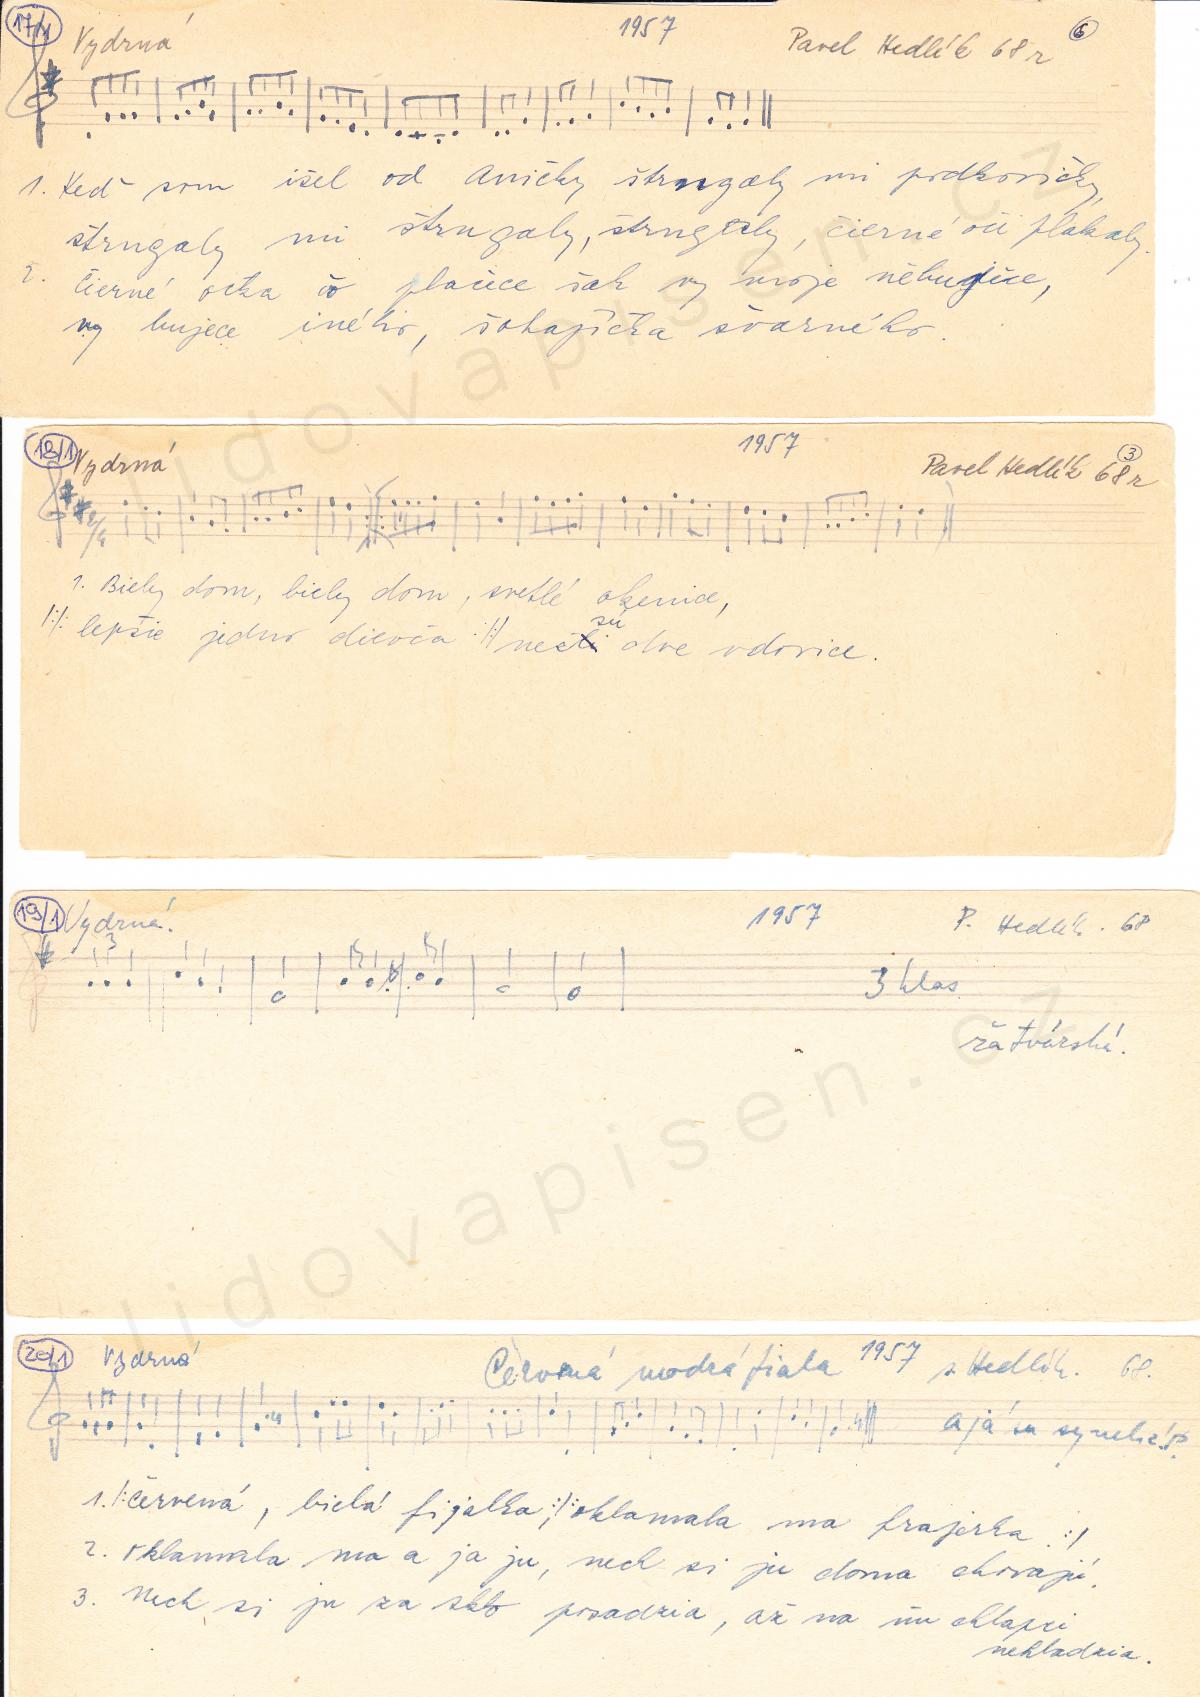 17/1 Vydrná 1957 Pavel Hedlík 68 r 6
1. Keď som išel od Aničky, štrngaly mi podkovičky,
štrngaly mi štrngaly, štrngaly, čierné oči plakaly.
2. čierné očka čo plačice šak vy moje něbuďěče,
vy bujece iného, šohajíčka švarného.
18/1 Vydrná 1957 Pavel Hedlík 68 r 3
2/4
1. Biely dom, biely dom, svetlé okenice,
/:/: lepšie jedno dievča :/:/ než sú dve vdovice.
19/1 Vydrná. 1957 P. Hedlík. 68
3
3 hlas
žatvárská.
20/1 Vydrná Červená modrá fiala 1957 z. Hedlík. 68.
1. /: červená, bielá fijalka, :/: oklamala ma frajerka :/
2. oklamala ma a ja ju, nech si ju doma chovajú.
3. Nech si ju za sklo posadzia, až na ňu chlapci
nehladzia.
lidovapisen.cz
lidovapisen.cz